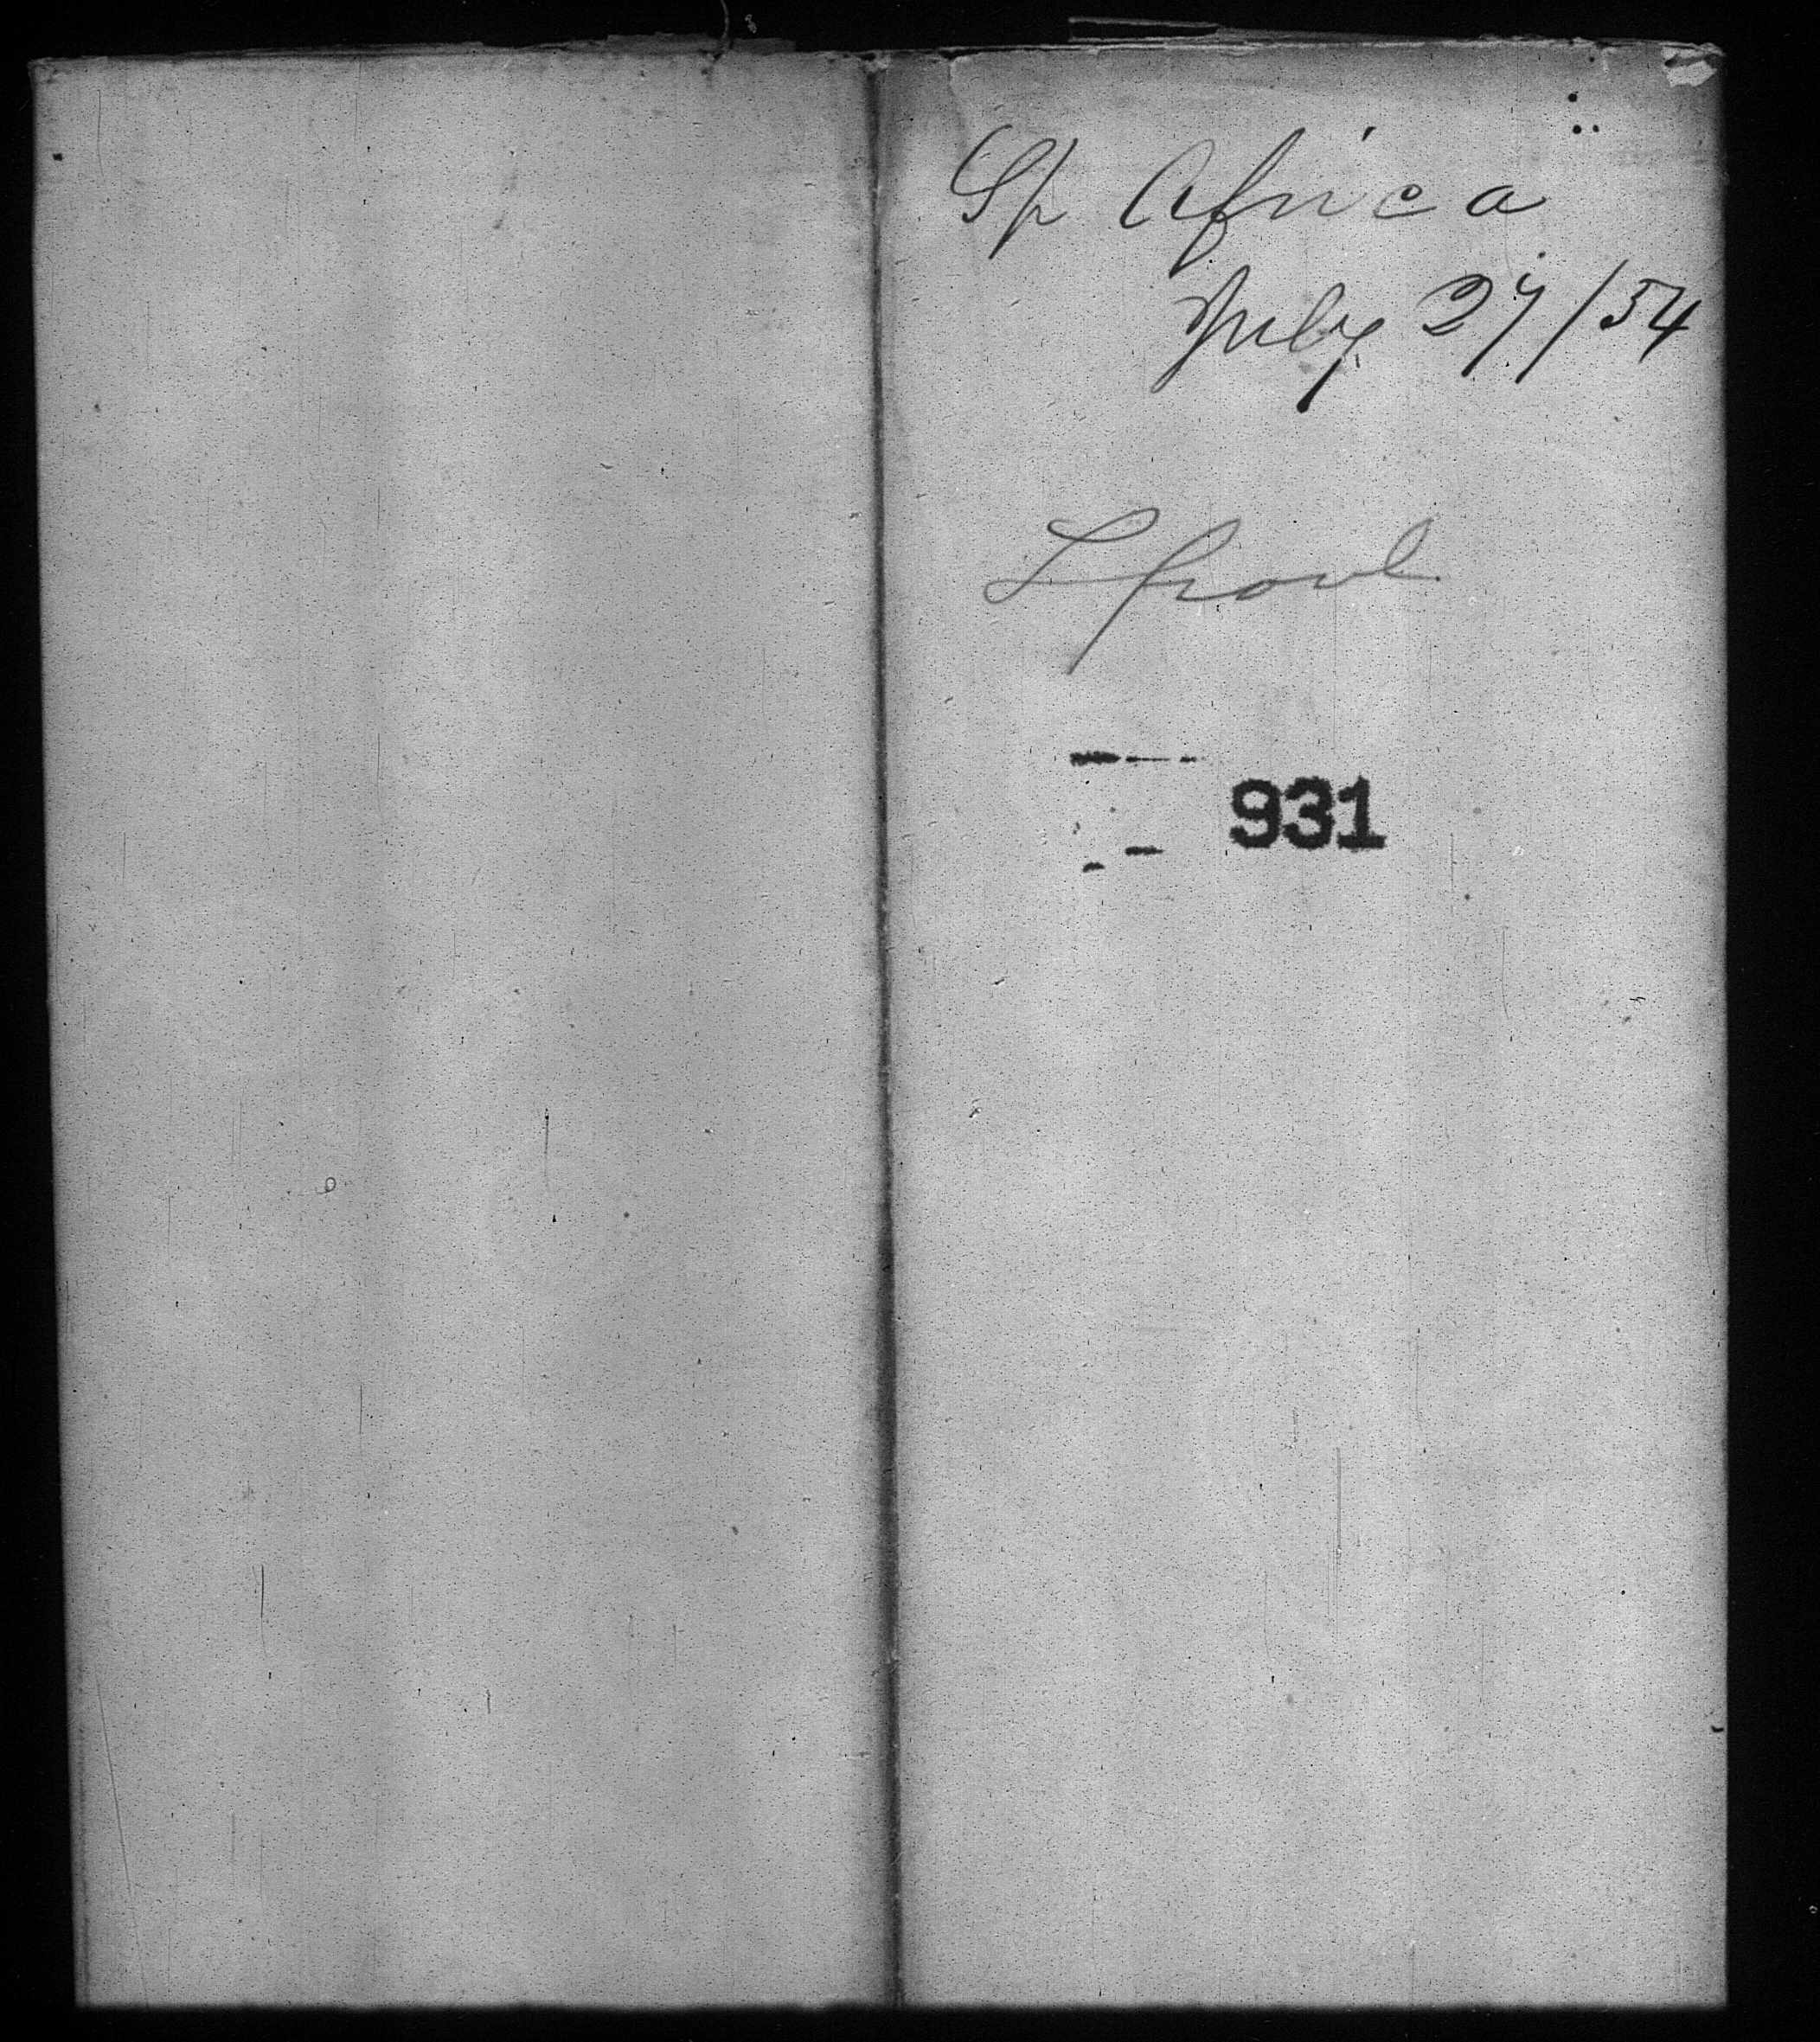 Sp Africa
July 27/54
L prove
931